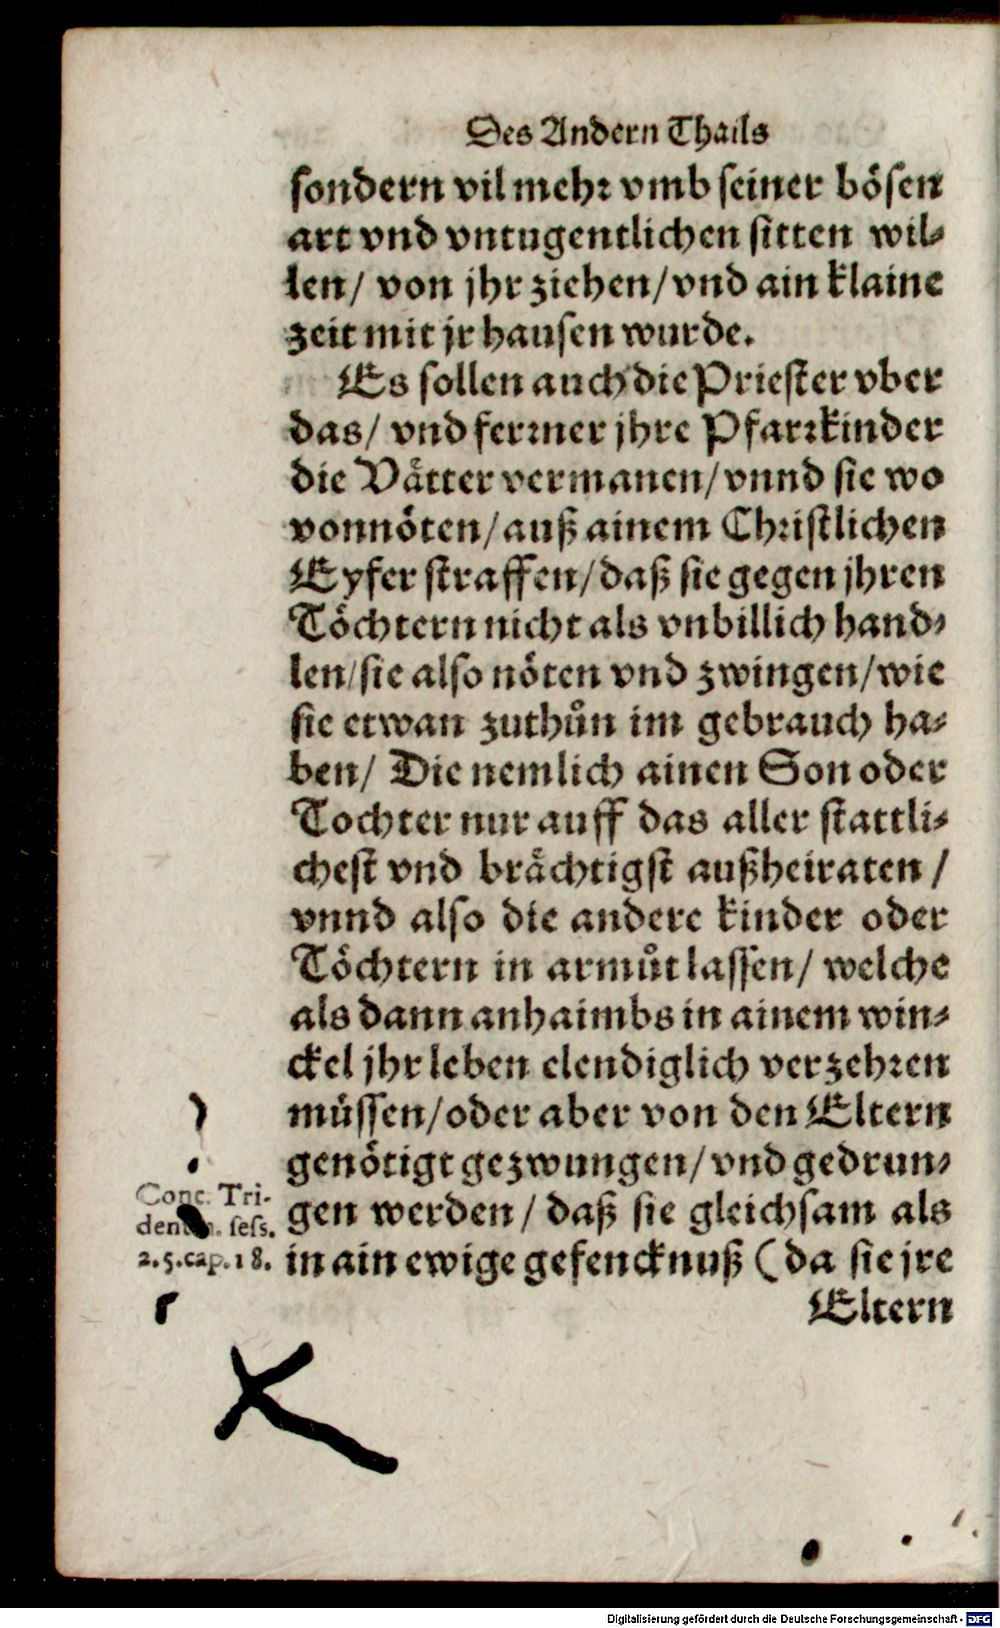 Des Andern Thails
sondern vil mehr vmb seiner bösen
art vnd vntugentlichen sitten wil-
len/ von jhr ziehen/ vnd ain klaine
zeit mit jr hausen wurde.
Es sollen auch die Priester vber
das/ vnd ferrner jhre Pfarrkinder
die Vätter vermanen/ vnnd sie wo
vonnöten/ auß ainem Christlichen
Eyfer straffen/ daß sie gegen jhren
Töchtern nicht als vnbillich hand-
len/ sie also nöten vnd zwingen/ wie
sie etwan zuthůn im gebrauch ha-
ben/ Die nemlich ainen Son oder
Tochter nur auff das aller stattli-
chest vnd brächtigst außheiraten/
vnnd also die andere kinder oder
Töchtern in armůt lassen/ welche
als dann anhaimbs in ainem win-
ckel jhr leben elendiglich verzehren
müssen/ oder aber von den Eltern
genötigt gezwungen/ vnd gedrun-
gen werden/ daß sie gleichsam als
in ain ewige gefencknuß (da sie jre
Eltern
Conc. Tri-
dentin. sess.
2.5.cap.18.
Digitalisierung gefördert durch die Deutsche Forschungsgemeinschaft - DFG